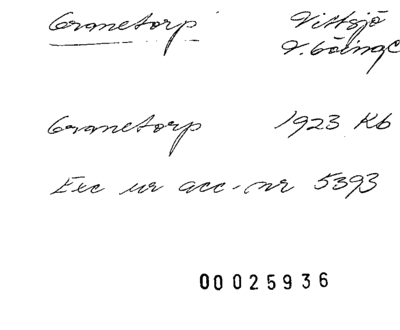 Granetorp Vittsjö
V. Göinge
Granetorp 1923 Kb
Exc ur acc.-nr 5393
00025936